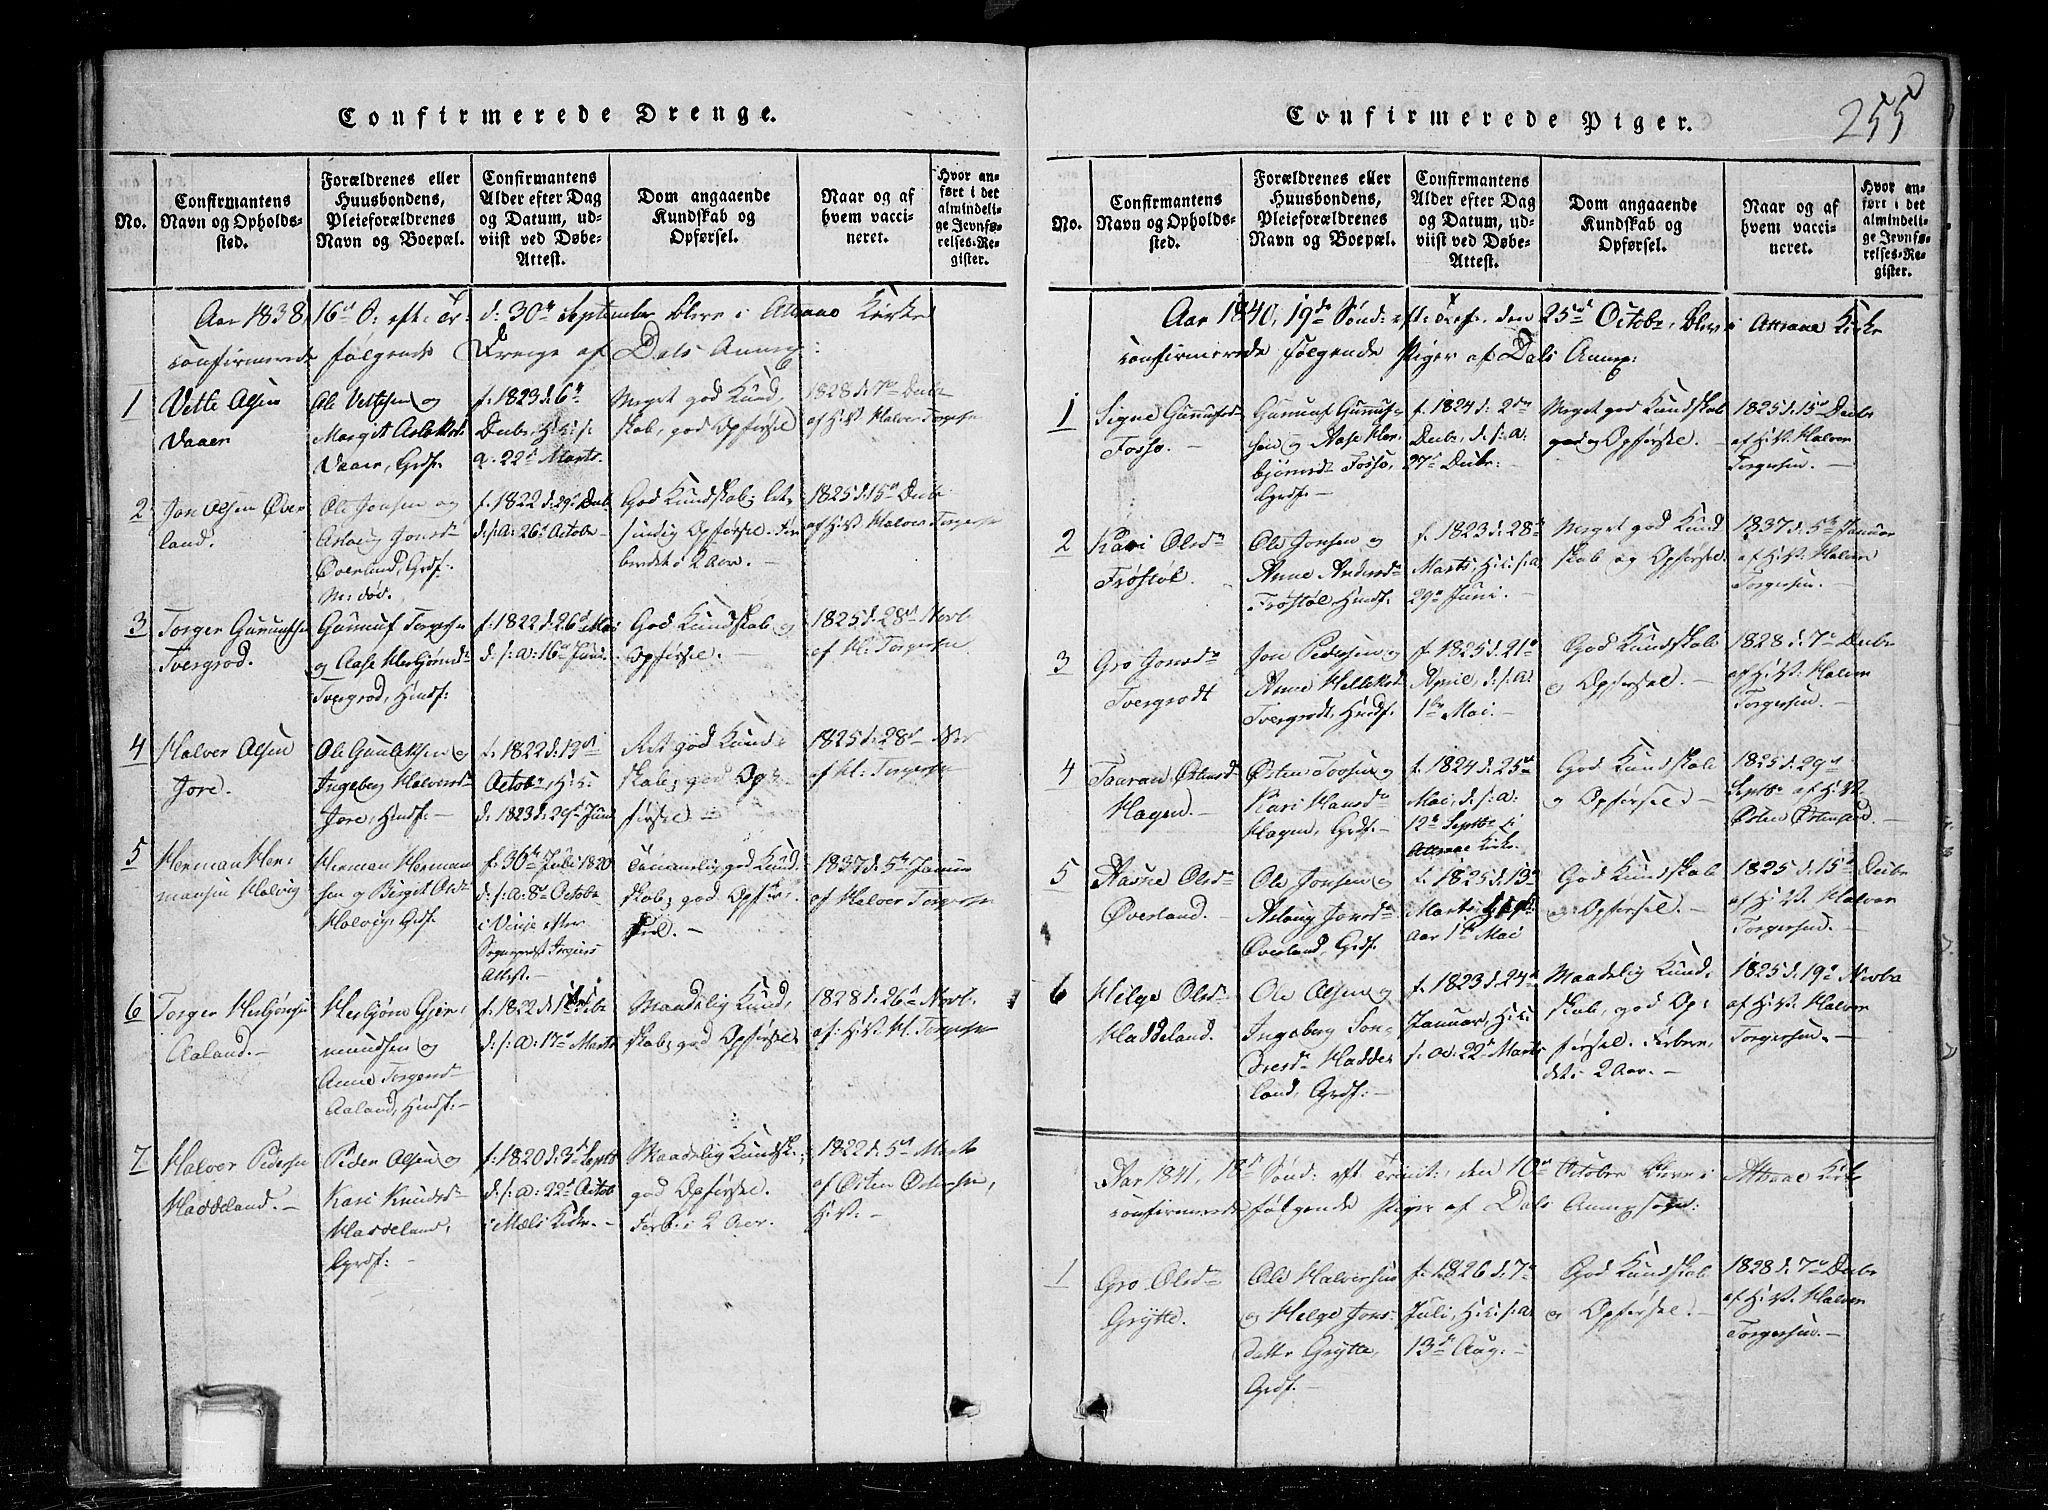 Confirmerede Drenge.
No.
Confirmantens
Navn og Opholds-
sted.
Forældrenes eller
Huusbondens,
Pleieforældrenes
Navn og Boepæl.
Confirmantens
Alder efter Dag
og Datum, ud-
viist ved Døbe-
Attest.
Dom angaaende
Kundskab og
Opførsel.
Naar og af
hvem vacci-
neret.
Hvor an-
ført i det
almindeli-
ge Jevnfø-
relses-Re-
gister.
Aar 1838, 16d S: eft: Tr: d: 30te September blev i Attraae Kirke
confirmerede følgende Drenge af Dals Annex:
1
Vetle Olsen
Vaaer
Ole Vetlesen og
Margit Aslaksd:
Vaaer, Grdf:
f: 1823 d: 6te
Decbr, H: i: s:
a: 22d Marts.
Meget god Kund-
skab, god Opførsel
1828 d: 7de Decbr
af H.V. Halvor Torgersen
2
Jon Olsen Øver
land.
Ole Jonsen og
Aslaug Jonsd:
Øverland, Grdf:
M: død.
f: 1822 d: 29d Decb
d: s: a: 26d Octobr
God Kundskab, let-
sindig Opførsel. For-
beredet i 2 Aar.
1825 d: 15de Decbr
af H.V. Halvor Torgersen
3
Torger Gunnufsen
Tvergrod.
Gunnuf Torgersen
og Aase Herbjørnsd:
Tvergrod, Hmdf:
f: 1822 d: 26d Mai
d: s: a: 16d Juni
God Kundskab og
Opførsel.
1825 d: 28d Novbr
af H: Torgersen
4
Halvor Olsen
Jore.
Ole Gunleksen og
Ingebor Halvorsd:
Jore, Hmdf:
f: 1822 d: 13d
Octobr, H: i:
d: 1823 d: 29d Juni
Ret god Kund-
skab, god Op-
førsel
1825 d: 28d Nov
af H: Torgersen
5
Herman Her-
mansen Halvig
Herman Herman
sen og Birgit Olsd:
Halvig, Grdf.
f: 30te Juli 1820
d: s: a: 8d Octobr
i Vinje efter
Sognepræst
Attest.
Temmelig god Kund-
skab, god Opfør-
sel.
1837 d: 5te Januar
af Halvor Torgersen
6
Torger Herbjørnsen
Aaland.
Herbjørn Gjer-
mundsen og
Anne Torgersd:
Aaland, Hmdf:
f: 1822 d: 1ste Febr
d: s: a: 17d Marts
Maadelig Kund-
skab, god Opførsel
1828 d: 26d Novb:
af: H.V. H. Torgersen
7
Halvor Pedersen
Haddeland.
Peder Olsen og
Kari Knudsd:
Haddeland,
Grdf:
f: 1820 d: 3d Septb
d: s: a: 22d Octob
i Mæls Kirke.
Maadelig Kundsk:
god Opførsel.
Forb: i 2 Aar.
1822 d: 5te Marts
af Østen Østensen,
H.V.
Confirmerede Piger.
255
No.
Confirmantens
Navn og Opholds-
sted.
Forældrenes eller
Huusbondens,
Pleieforældrenes
Navn og Boepæl.
Confirmantens
Alder efter Dag
og Datum, ud-
viist ved Døbe-
Attest.
Dom angaaende
Kundskab og
Opførsel.
Naar og af
hvem vacci-
neret.
Hvor an-
ført i det
almindeli-
ge Jevnfø-
relses-Re-
gister.
Aar 1840, 19de Sønd: eft: Tref. den 25de Octobr, blev i Attraae Kirke
confirmerede følgende Piger af Dals Annex:
1
Signe Gunnufsd:
Fosso.
Gunnuf Gunnuf-
sen og Aase Her
bjørnsd: Fosso,
Grdf:
f: 1824 d: 2den
Decbr, d: s: a:
27d Decbr:
Meget god Kundskab
og Opførsel.
1825 d: 15d Decbr
af H.V. Halvor
Torgersen.
2
Kari Olsd:
Frøstøl.
Ole Jonsen og
Anne Andersd:
Frøstøl, Hmdf:
f: 1823 d: 28de
Marts, H: i: s: a:
29d Juni.
Meget god Kund
skab og Opførsel.
1837 d: 5te Januar
af H.V. Halvor
Torgersen.
3
Gro Jonsd:
Tvergrodt
Jon Pedersen og
Anne Helleksd:
Tvergrodt, Hmdf.
f: 1825 d: 21d
April, d: s: a:
1ste Mai.
God Kundskab
og Opførsel.
1828 d: 7de Decbr
af H.V. Halvor
Torgersen.
4
Taaran Østensd:
Hagen.
Østen Torsen og
Kari Hansd:
Hagen, Grdf.
f: 1824 d: 25d
Mai, d: s: a:
12d Septbr i
Attraae Kirke
God Kundskab
og Opførsel
1825 d: 29d
Septbr af H.V.
Østen Østensen.
5
Aasne Olsd:
Øverland.
Ole Jonsen og
Aslaug Jonsd:
Øverland, Grdf:
f: 1825 d: 13d
Marts,
Aar 1ste Mai
God Kundskab
og Opførsel.
1825 d: 15d Decbr
af H.V. Halvor
Torgersen.
6
Helge Olsd:
Haddeland.
Ole Olsen og
Ingeborg Son-
dresd: Hadde
land, Grdf:
f: 1823 d: 24d
Januar, H: i:
s: a: 22d Marts
Maadelig Kund-
skab, god Op-
førsel. Forbere-
det i 2 Aar.
1825 d: 19d Novbr
af H.V. Halvor
Torgersen.
Aar 1841, 18de Sønd: eft Trinit: den 10de October blev i Attraae Kirke
confirmerede følgende Piger af Dals Annexsogn:
1
Gro Olsd:
Grytte.
Ole Halvorsen
og Helge Jons-
datter Grytte,
Grdf.
f: 1826 d: 7d
Juli, H: i: s: a:
13d Aug:
God Kundskab
og Opførsel.
1828 d: 7de Decbr
af H.V. Halvor
Torgersen.